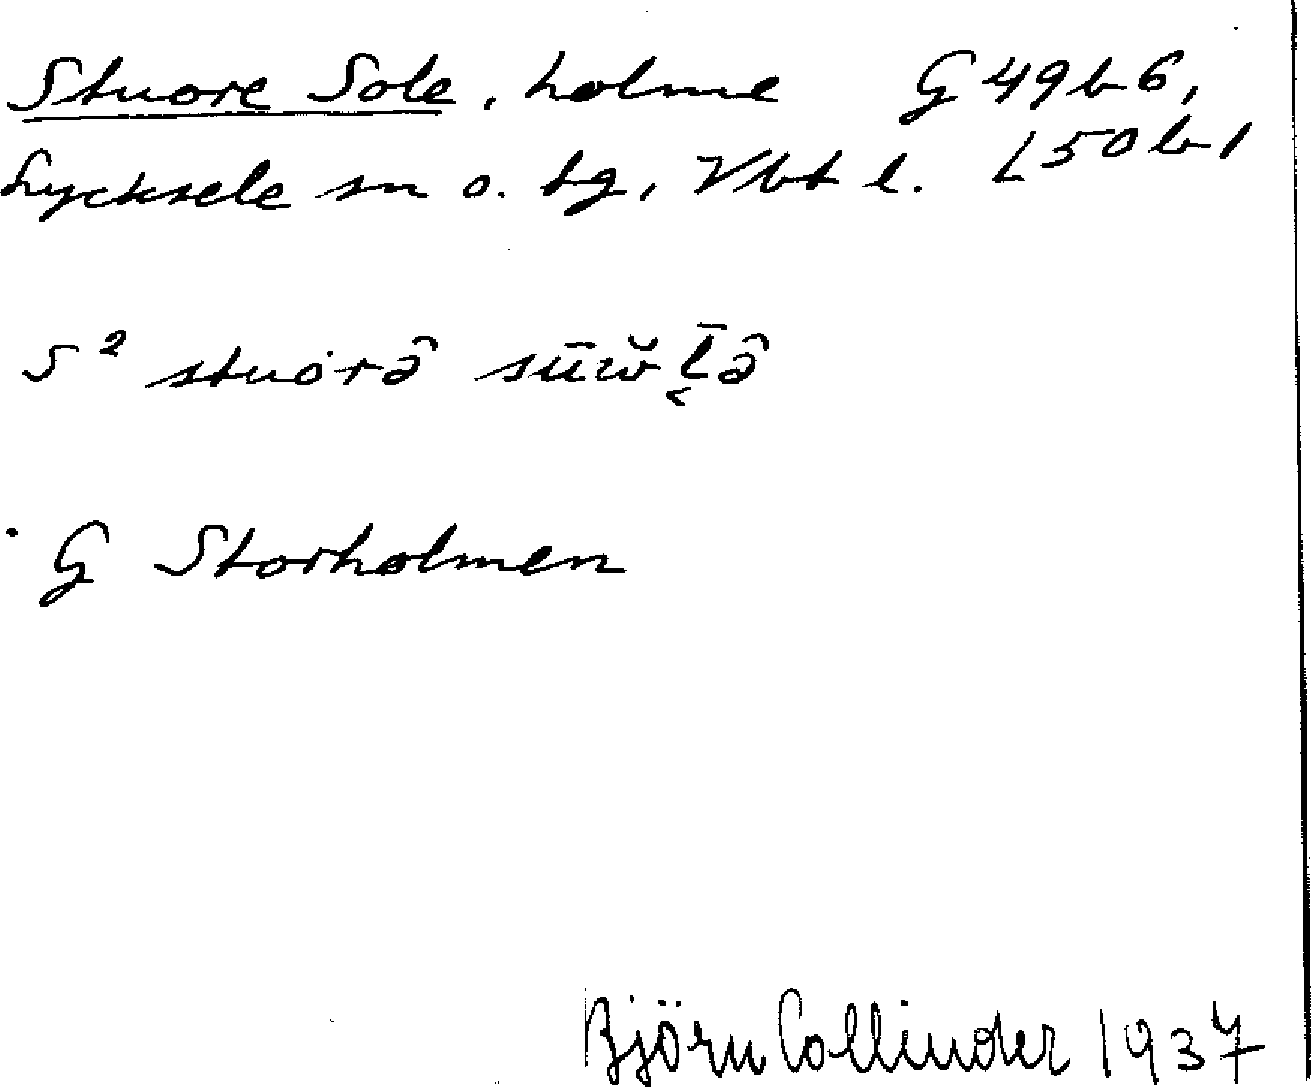 Stuore Sole, holme G 49 b 6,
Lycksele sn o. tg, Vbt l. L 50 b 1
S² stuȯrə̂ sūw̆l̬̄ə̂
G Storholmen
Björn Collinder 1937